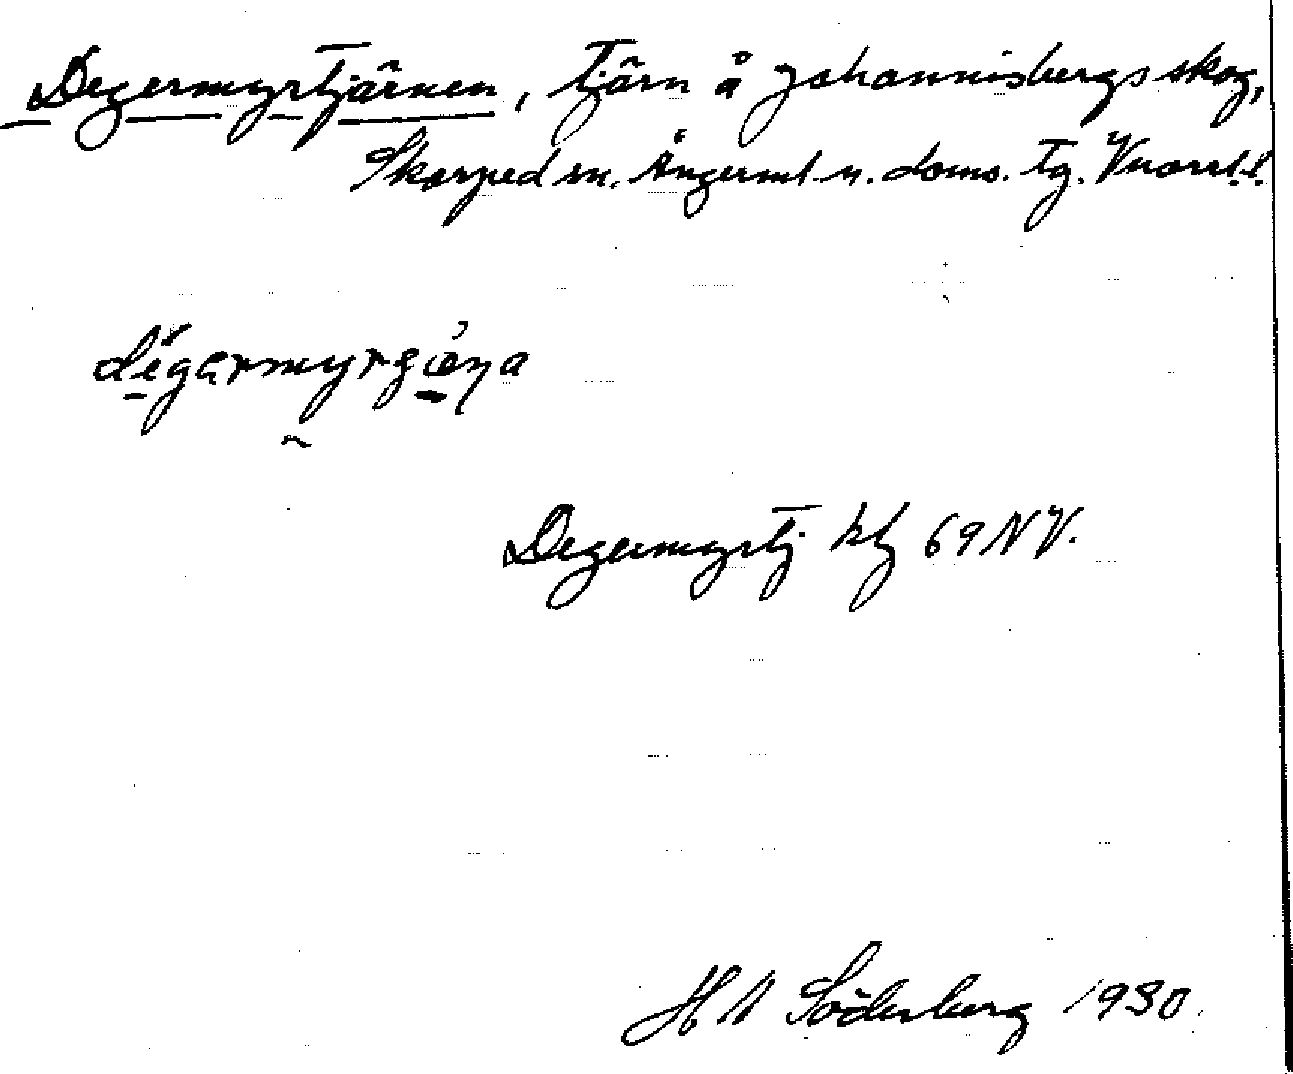 Degermyrtjärnen, tjärn å Johannisbergs skog,
Skorped sn. Ångerml n. doms. Tg.
Degermyrtj kbl 69 NV.
H N Söderberg 1930.